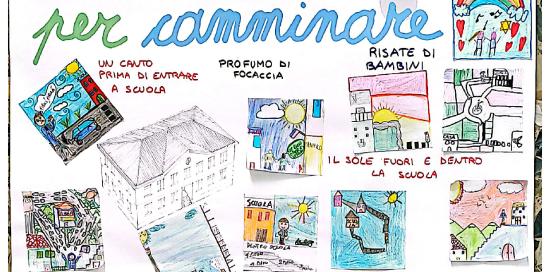 per camminare
UN CANTO
PRIMA DI ENTRARE
A SCUOLA
PROFUMO DI
FOCACCIA
RISATE DI
BAMBINI
IL SOLE FUORI E DENTRO
LA SCUOLA
SCUOLA